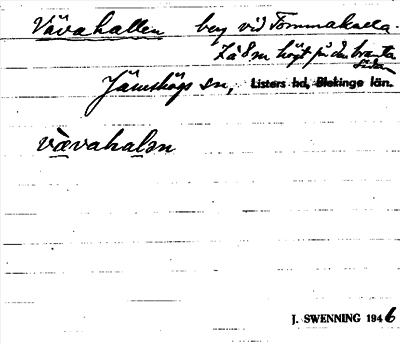 Vävahallen berg vid Tommakulla.
7 à 8 m högt på den branta
sidan
Jämshögs sn, Listers hd, Blekinge län.
vävahalen
J. SWENNING 1946